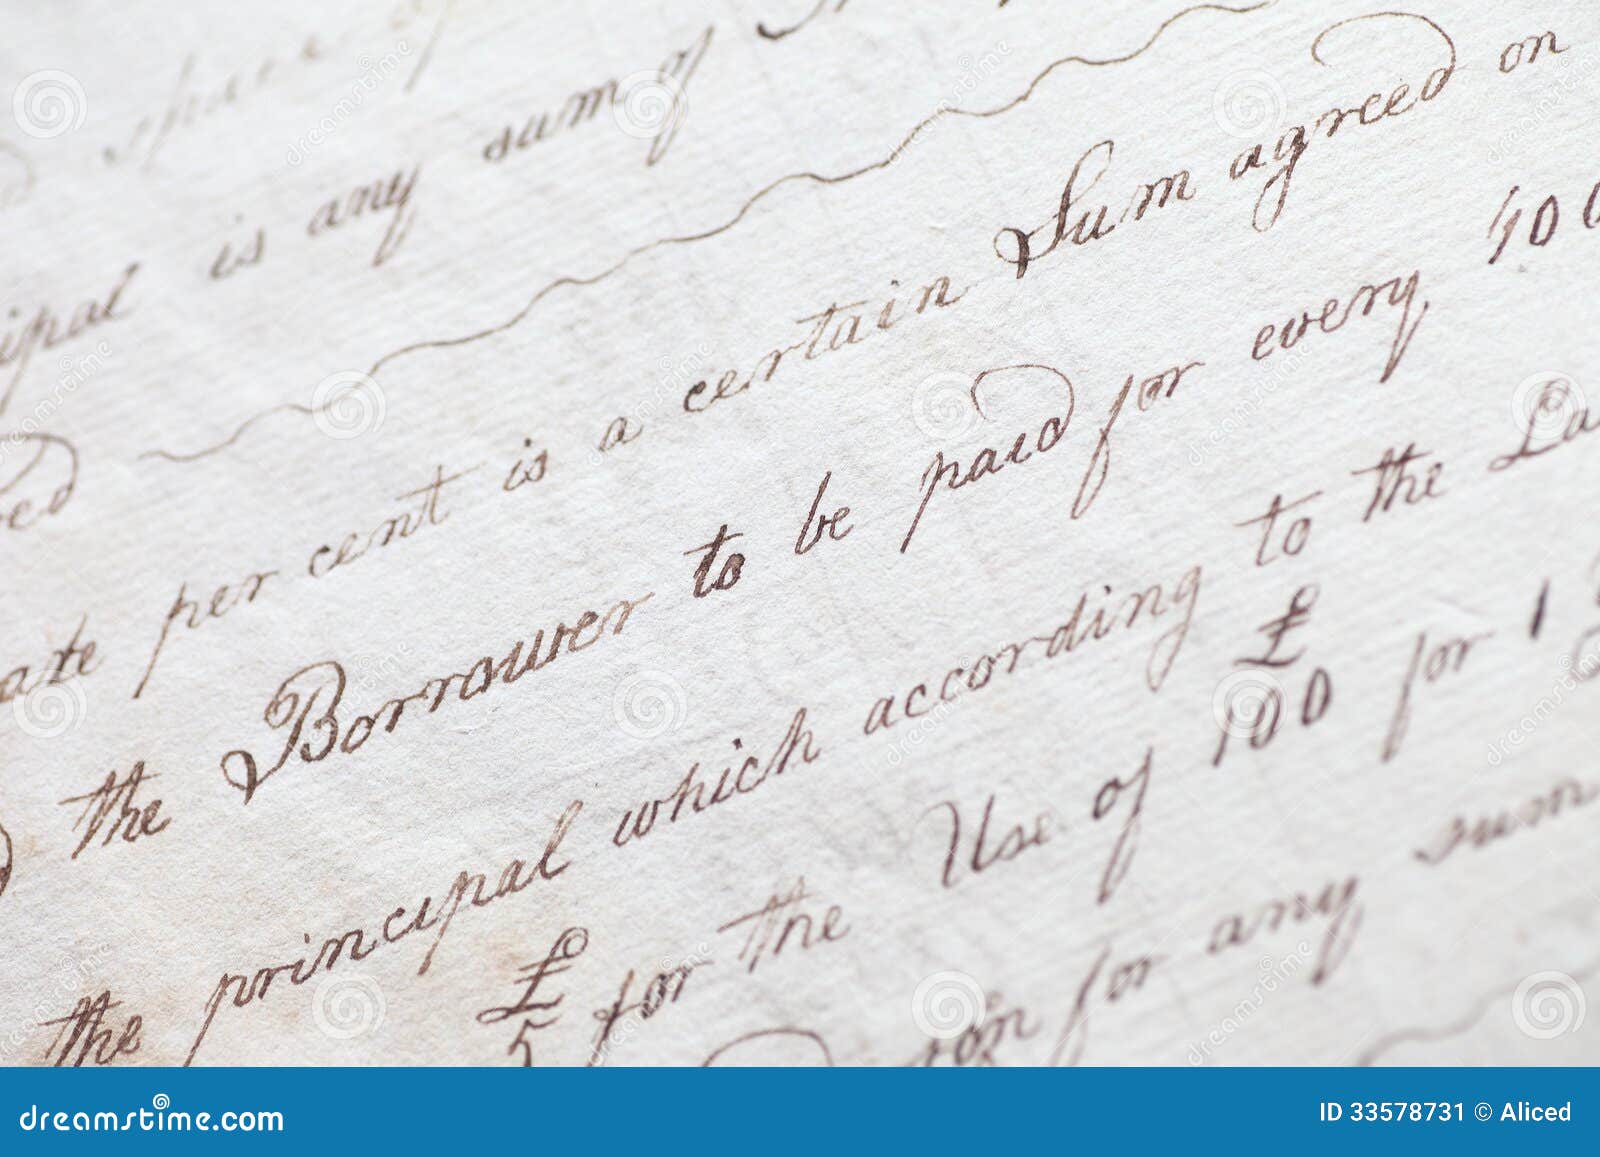 is any sum of
per cent is a certain Sum agreed on
the Borrower to be paid for every 100
the principal which according to the La
£ £
5 for the Use of 100 for 1
for any sum
dreamstime.com
ID 33578731 © Aliced